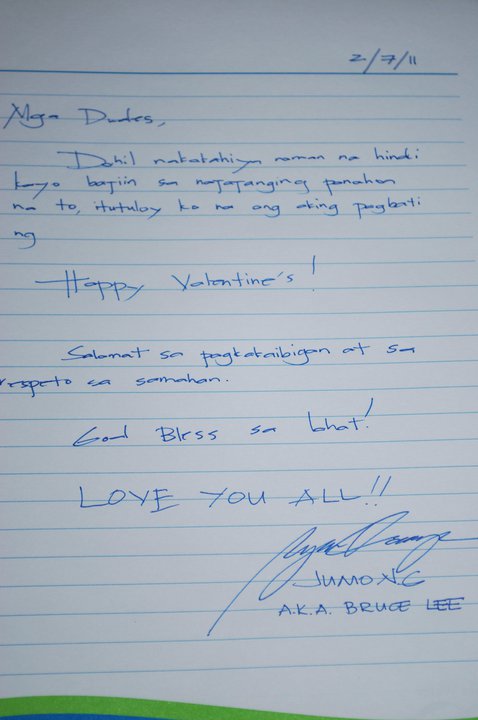 2/7/11
Mga Dudes,
Dahil nakakahiya naman na hindi
kayo batiin sa natatanging panahon
na to, itutuloy ko na ang aking pagbati
ng
Happy Valentine's!
Salamat sa pagkakaibigan at sa
respeto sa samahan.
God Bless sa lahat!
LOVE YOU ALL!!
JUMONG
A.K.A. BRUCE LEE